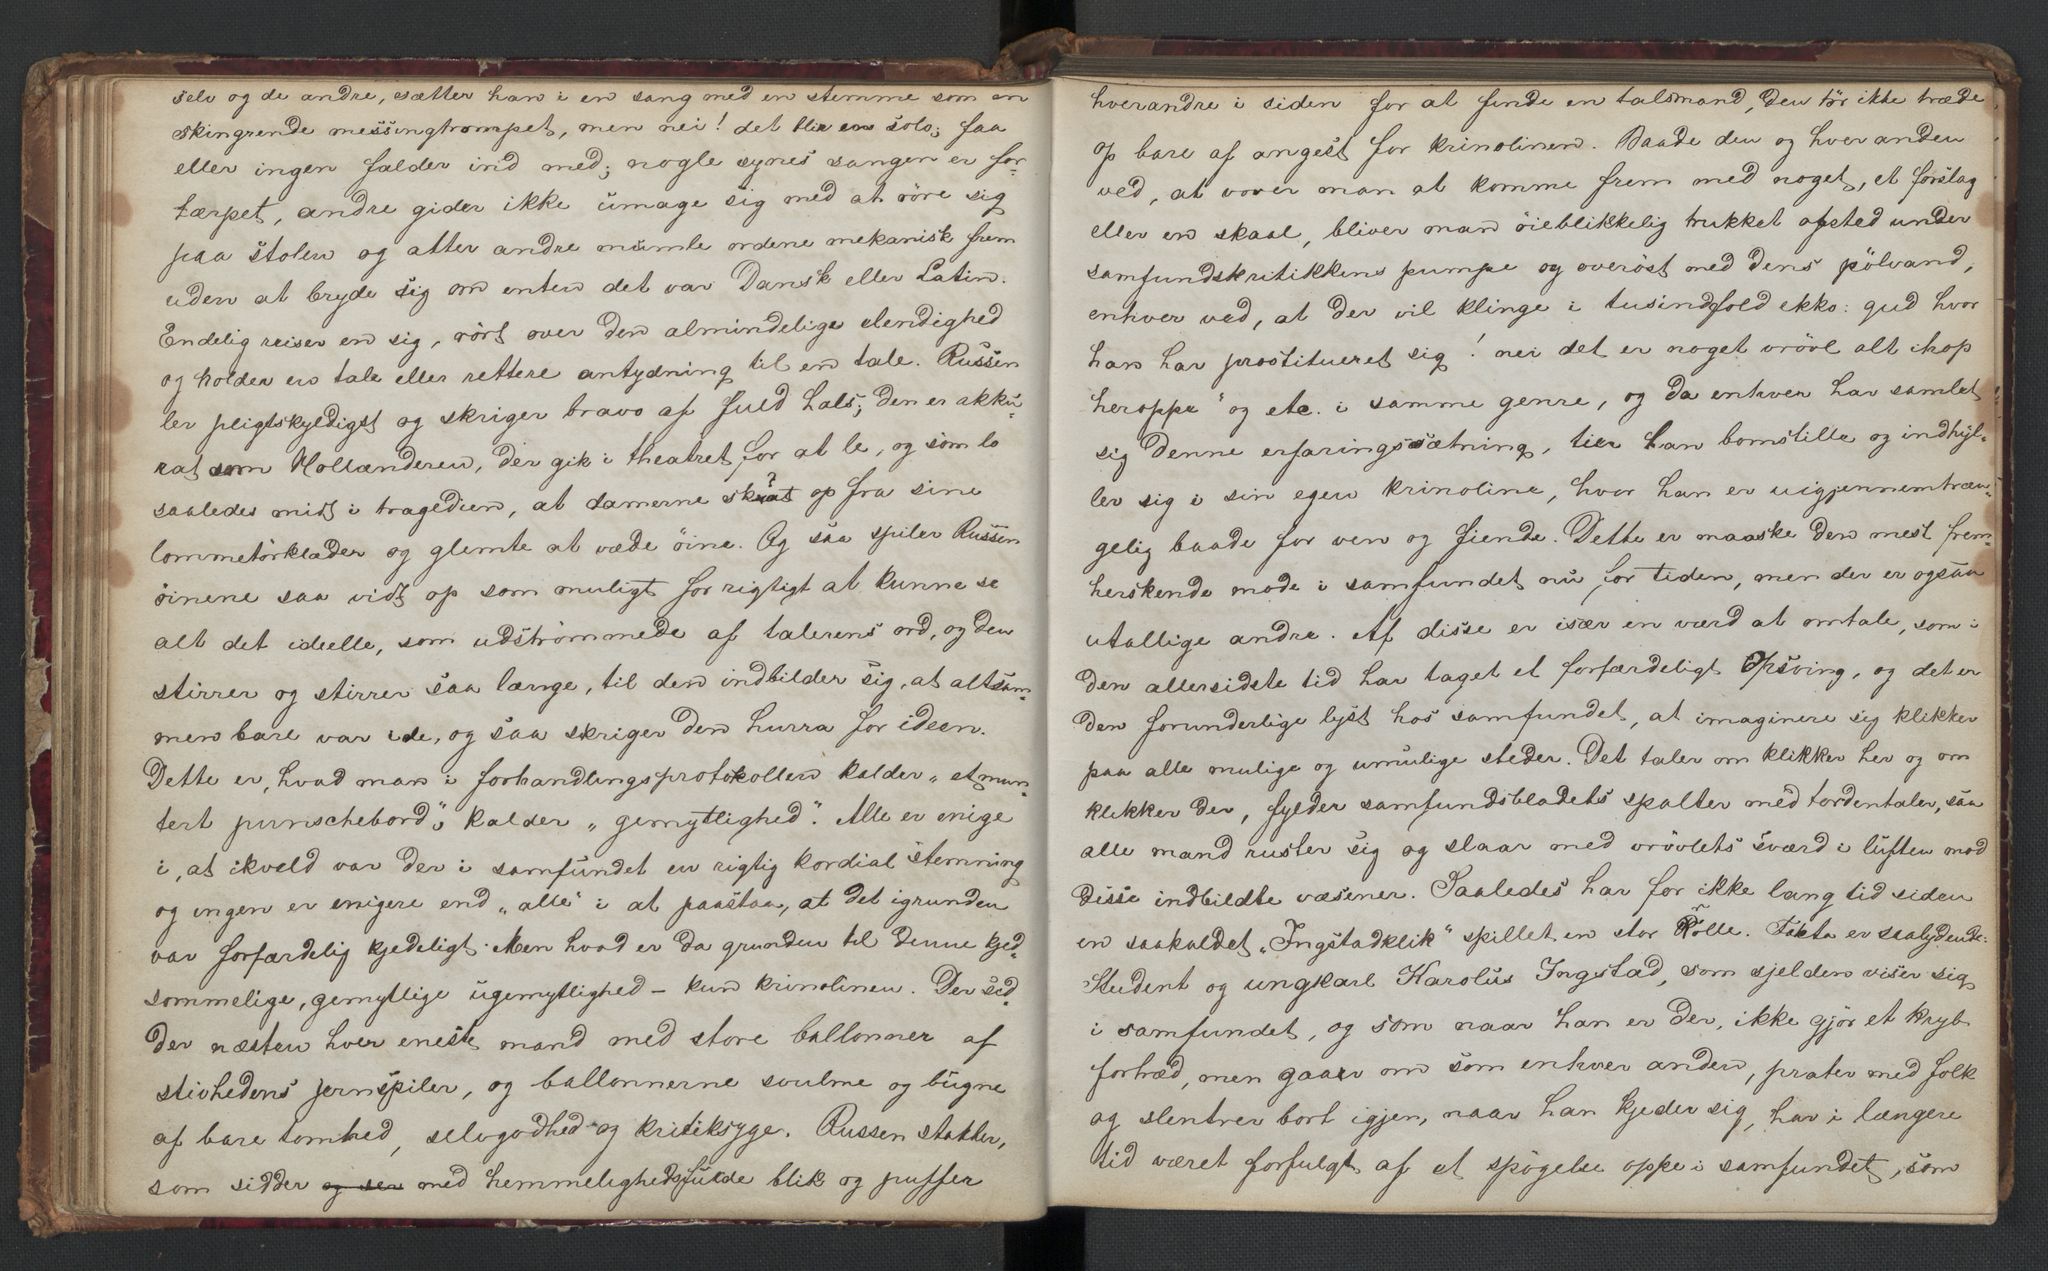 selv og de andre, sætter han i en sang med en stemme som en
skingrende messingtrompet, men nei! det blir en solo; faa
eller ingen falder ind med; nogle synes sangen er for-
tærpet, andre gider ikke umage sig med at röre sig
paa stolen og atter andre mumle ordene mekanisk frem
uden at bryde sig om enten det var Dansk eller Latin.
Endelig reiser en sig, rört over den almindelige elendighed
og holder en tale eller rettere antydning til en tale. Russen
ler pligtskyldigst og skriger bravo af fuld hals; den er akku-
rat som Hollænderen, der gik i theatret for at le, og som lo
saaledes midt i tragedien, at damerne skvat op fra sine
lommetörklæder og glemte at væde öine. Og saa spiler Russen
öinene saa vidt op som muligt for rigtigt at kunne se
alt det ideelle, som udströmmede af talerens ord, og den
stirrer og stirrer saa længe, til den indbilder sig, at altsam-
men bare var ide, og saa skriger den hurra for ideen.
Dette er, hvad man i forhandlingsprotokollen kalder „et mun-
tert punschebord", kalder „gemytlighed". Alle er enige
i, at ikveld var der i samfundet en rigtig kordial stemning
og ingen er enigere end „alle" i at paastaa, at det igrunden
var forfærdelig kjedeligt. Men hvad er da grunden til denne kjed-
sommelige, gemytlige ugemytlighed – kun krinolinen. Der sid-
der næsten hver eneste mand med store ballonner af
stivhedens jernspiler, og ballonnerne svulme og bugne
af bare tomhed, selvgodhed og kritiksyge. Russen stakker,
som sidder og ser med hemmelighedsfulde blik og puffer
hverandre i siden for at finde en talsmand, den tör ikke træde
op bare af angest for krinolinen. Baade den og hver anden
ved, at vover man at komme frem med noget, et forslag
eller en skaal, bliver man öieblikkelig trukket afsted under
samfundskritikkens pumpe og overöst med dens pölvand,
enhver ved, at der vil klinge i tusindfold ekko: gud hvor
han har prostitueret sig! nei det er noget vrövl alt ihop
heroppe" og etc. i samme genre, og da enhver har samlet
sig denne erfaringssætning, tier han bomstille og indhyl-
ler sig i sin egen krinoline, hvor han er uigjennemtræn-
gelig baade for ven og fiende. Dette er maaske den mest frem-
herskende mode i samfundet nu for tiden, men der er ogsaa
utallige andre. Af disse er især en værd at omtale, som i
den allersidste tid har taget et forfærdeligt Opsving, og det er
den forunderlige lyst hos samfundet, at imaginere sig klikker
paa alle mulige og umulige steder. Det taler om klikker her og om
klikker der, fylder samfundsbladets spalter med tordentaler, saa
alle mand ruster sig og slaar med vrövlets sværd i luften mod
disse indbildte væsener. Saaledes har for ikke lang tid siden
en saakaldet „Ingstadklik" spillet en stor Rolle. Fakta er saalydende:
Student og ungkarl Karolus Ingstad, som sjelden viser sig
i samfundet, og som naar han er der, ikke gjör et kryb
fortræd, men gaar om som enhver anden, prater med folk
og slentrer bort igjen, naar han kjeder sig, har i længere
tid været forfulgt af et spögelse oppe i samfundet, som